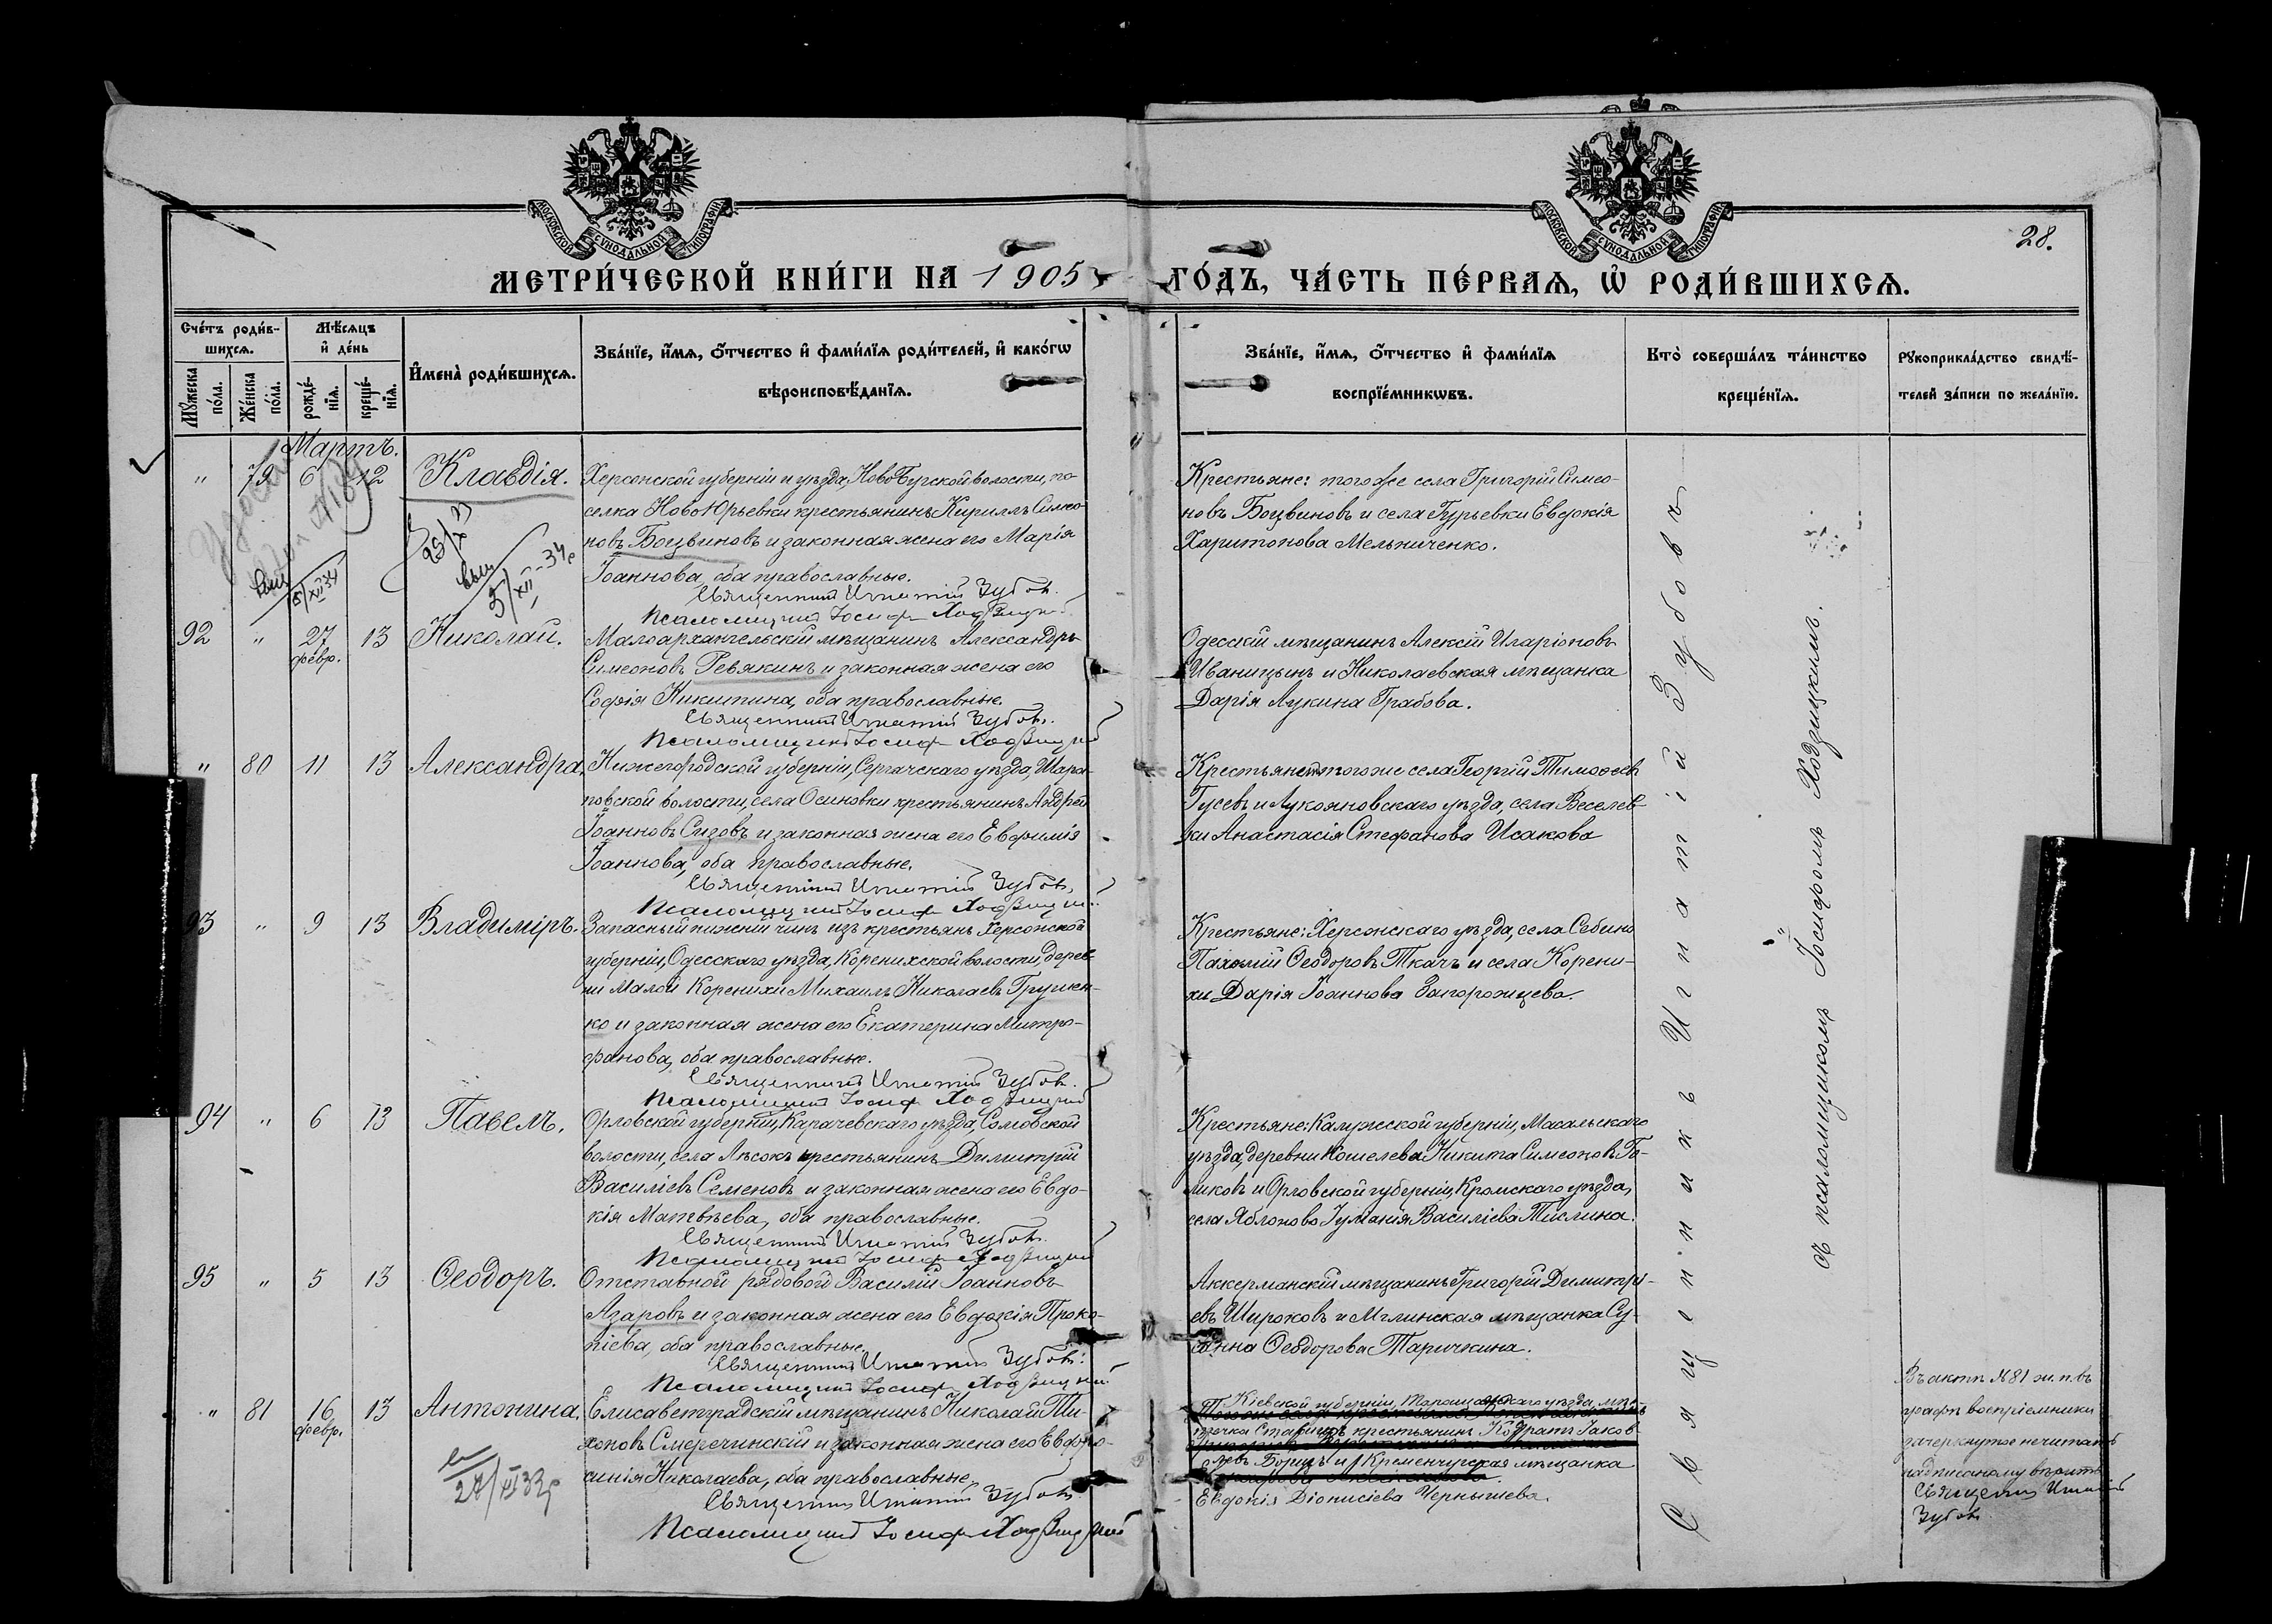 МОСКОВСКОЙ СУНОДАЛЬНОЙ ТИПОГРАФІИ
МОСКОВСКОЙ СУНОДАЛЬНОЙ ТИПОГРАФІИ
28.
МЕТРИ́ЧЕСКОЙ КНИ́ГИ НА 1905
ГО́ДЪ, ЧА́СТЬ ПЕ́РВАѦ, Ѡ҆ РОДИ́ВШИХСѦ.
Сче́тъ роди́в-
шихсѧ.
Мѣ́сѧцъ
и҆ де́нь
Мꙋ́жеска
по́ла.
Же́нска
по́ла.
рожде́-
нїѧ.
креще́-
нїѧ.
И҆мена̀ роди́вшихсѧ.
Зва́нїе, и҆́мѧ, ѻ҆́тчество и҆ фами́лїѧ роди́телей, и҆ како́гѡ
вѣроисповѣ́данїѧ.
Зва́нїе, и҆́мѧ, ѻ҆́тчество и҆ фами́лїѧ
воспрїе́мникѡвъ.
Кто̀ соверша́лъ та́инство
креще́нїѧ.
Рꙋкоприкла́дство свидѣ́-
телей за́писи по жела́нїю.
Мартъ.
" 79 6 12 Клавдія.
Херсонской губерніи и уѣзда, НовоБугской волости, по-
селка НовоЮрьевки крестьянинъ Кириллъ Симео-
новъ Боцвиновъ и законная жена его Марія
Іоаннова, оба православные.
Священникъ Игнатій Зубовъ.
Псаломщикъ Іосифъ Ходзицкій
Крестьяне: того же села Григорій Симео-
новъ Боцвиновъ и села Гурьевки Евдокія
Харитонова Мельниченко.
25/X 33
вып
5/XII-34
92 " 27 февр. 13 Николай.
Малоархангельскій мѣщанинъ Александръ
Симеоновъ Ревякинъ и законная жена его
Софія Никитина, оба православные.
Священникъ Игнатій Зубовъ.
Псаломщикъ Іосифъ Ходзицкій
Одесскій мѣщанинъ Алексій Иларіоновъ
Иваницынъ и Николаевская мѣщанка
Дарія Лукина Грабова.
" 80 11 13 Александра.
Нижегородской губерніи, Сергачскаго уѣзда, Шара-
повской волости, села Осиновки крестьянинъ Андрей
Іоанновъ Сизовъ и законная жена его Евфимія
Іоаннова, оба православные.
Священникъ Игнатій Зубовъ.
Псаломщикъ Іосифъ Ходзицкій
Крестьяне: того же села Георгій Тимоѳеевъ
Гусевъ и Лукояновскаго уѣзда, села Веселев-
ки Анастасія Стефанова Исакова
93 " 9 13 Владиміръ.
Запасный нижній чинъ изъ крестьянъ Херсонской
губерніи, Одесскаго уѣзда, Коренихской волости, дерев-
ни Малой Коренихи Михаилъ Николаевъ Грушен-
ко и законная жена его Екатерина Митро-
фанова, оба православные.
Священникъ Игнатій Зубовъ.
Псаломщикъ Іосифъ Ходзицкій
Крестьяне: Херсонскаго уѣзда, села Себино
Пахомій Ѳеодоровъ Ткачъ и села Корени-
хи Дарія Іоаннова Запорожцева.
94 " 6 13 Павелъ.
Орловской губерніи, Карачевскаго уѣзда, Сомовской
волости, села Лѣсокъ крестьянинъ Димитрій
Василіевъ Семеновъ и законная жена его Евдо-
кія Матвѣева, оба православные.
Священникъ Игнатій Зубовъ.
Псаломщикъ Іосифъ Ходзицкій
Крестьяне: Калужской губерніи, Масальскаго
уѣзда, деревни Кошелева Никита Симеоновъ Го-
ликовъ и Орловской губерніи, Кромскаго уѣзда,
села Яблоново Василіева
95 " 5 13 Ѳеодоръ.
Отставной рядовой Василій Іоанновъ
Азаровъ и законная жена его Евдокія Проко-
піева, оба православные.
Священникъ Игнатій Зубовъ.
Псаломщикъ Іосифъ Ходзицкій
Аккерманскій мѣщанинъ Григорій Димитрі-
евъ Широковъ и Мглинская мѣщанка Су-
санна Ѳеодорова Таричкина.
" 81 16 февр. 13 Антонина.
Елисаветградскій мѣщанинъ Николай Ти-
хоновъ Смеречинскій и законная жена его Евфро-
синія Николаева, оба православные.
Священникъ Игнатій Зубовъ
Псаломщикъ Іосифъ Ходзицкій
27/XI 33
Кіевской губерніи, Таращанскаго уѣзда, мѣс-
течка Ставищъ крестьянинъ Кодратъ Іаков-
левъ Борщъ и Кременчугская мѣщанка
Евдокія Діонисіева Чернышева.
Священникъ Игнатій Зубовъ
съ псаломщикомъ Іосифомъ Ходзицкимъ.
Въ актѣ №81 ж. п. въ
графѣ воспріемники
зачеркнутое нечитать
надписанному вѣрить
Священникъ Игнатій
Зубовъ